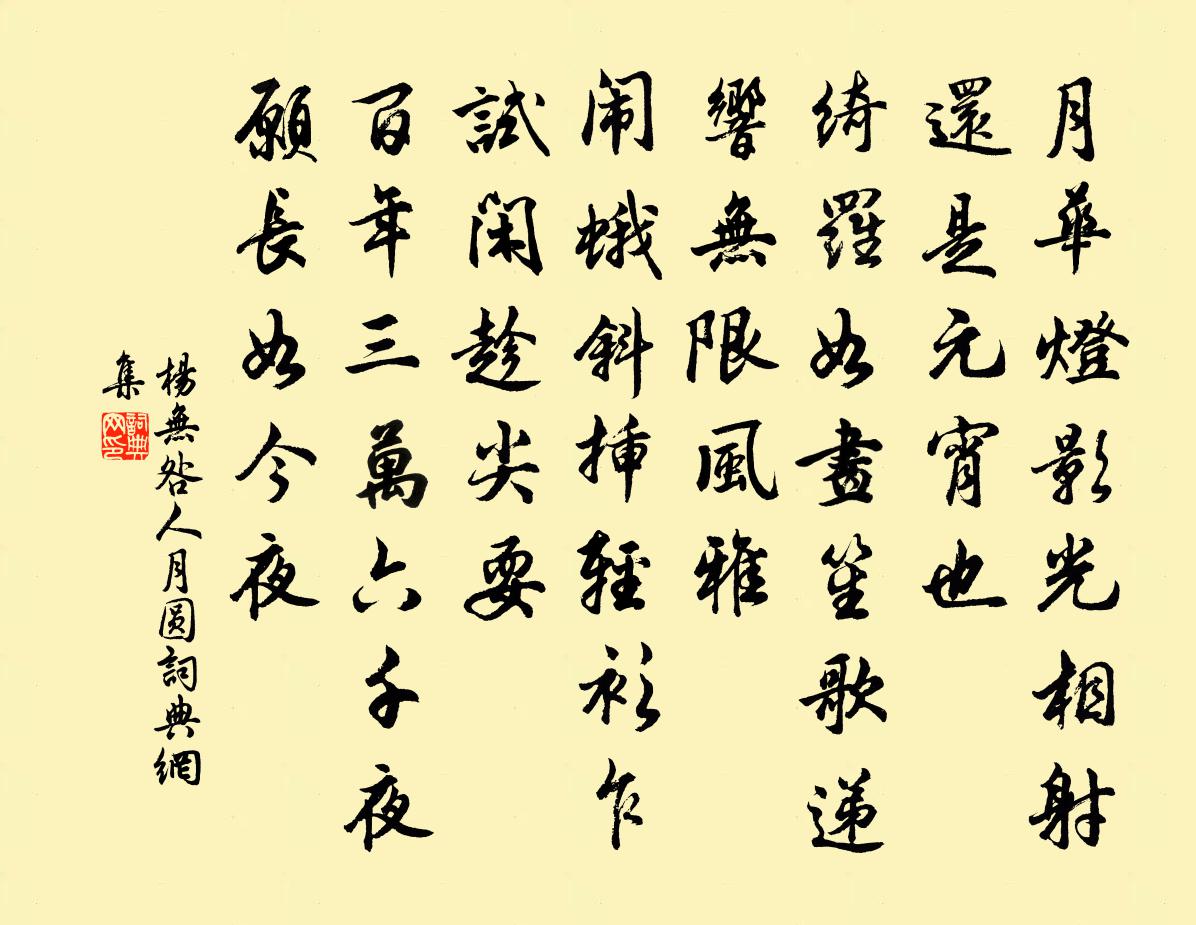 月華燈影光相射
還是元宵也
綺羅如畫笙歌递
響無限風雅
闹蛾斜插輕衫乍
試閑趁尖耍
百年三萬六千夜
願長如今夜
楊無咎人月圆詞典網
集
詞典
网印